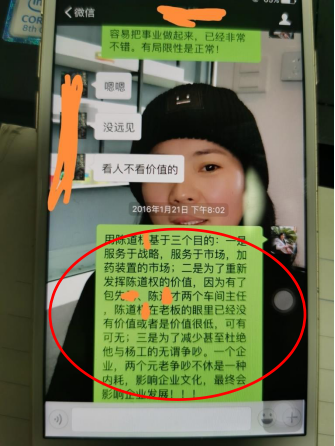 CORE
8th
83%
微信
容易把事业做起来，已经非常
不错。有局限性是正常！
嗯嗯
没远见
看人不看价值的
2016年1月21日 下午8:02
用陈道权基于三个目的：一是
服务于战略，服务于市场，加
药装置的市场；二是为了重新
发挥陈道权的价值，因为有了
包 陈 才两个车间主任
，陈道权在老板的眼里已经没
有价值或者是价值很低，可有
可无；三是为了减少甚至杜绝
他与杨工的无谓争吵。一个企
业，两个元老争吵不休是一种
内耗，影响企业文化，最终会
影响企业发展！！！